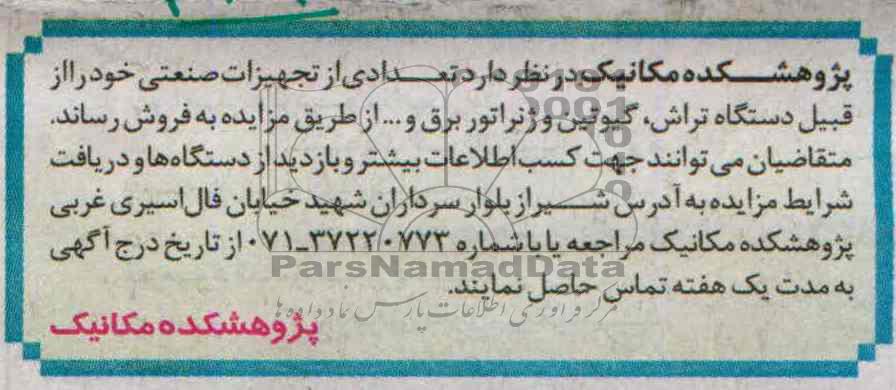 پژوهشکده مکانیک در نظر دارد تعدادی از تجهیزات صنعتی خود را از
قبیل دستگاه تراش، گیوتین و ژنراتور برق و... از طریق مزایده به فروش رساند.
متقاضیان می توانند جهت کسب اطلاعات بیشتر و بازدید از دستگاه ها و دریافت
شرایط مزایده به آدرس شیراز بلوار سرداران شهید خیابان فال اسیری غربی
پژوهشکده مکانیک مراجعه یا با شماره ۳۷۲۲۰۷۷۳-۰۷۱ از تاریخ درج آگهی
ParsNamadData
به مدت یک هفته تماس حاصل نمایند.
مرکز فرآوری اطلاعات پارس نماد داده ها
پژوهشکده مکانیک